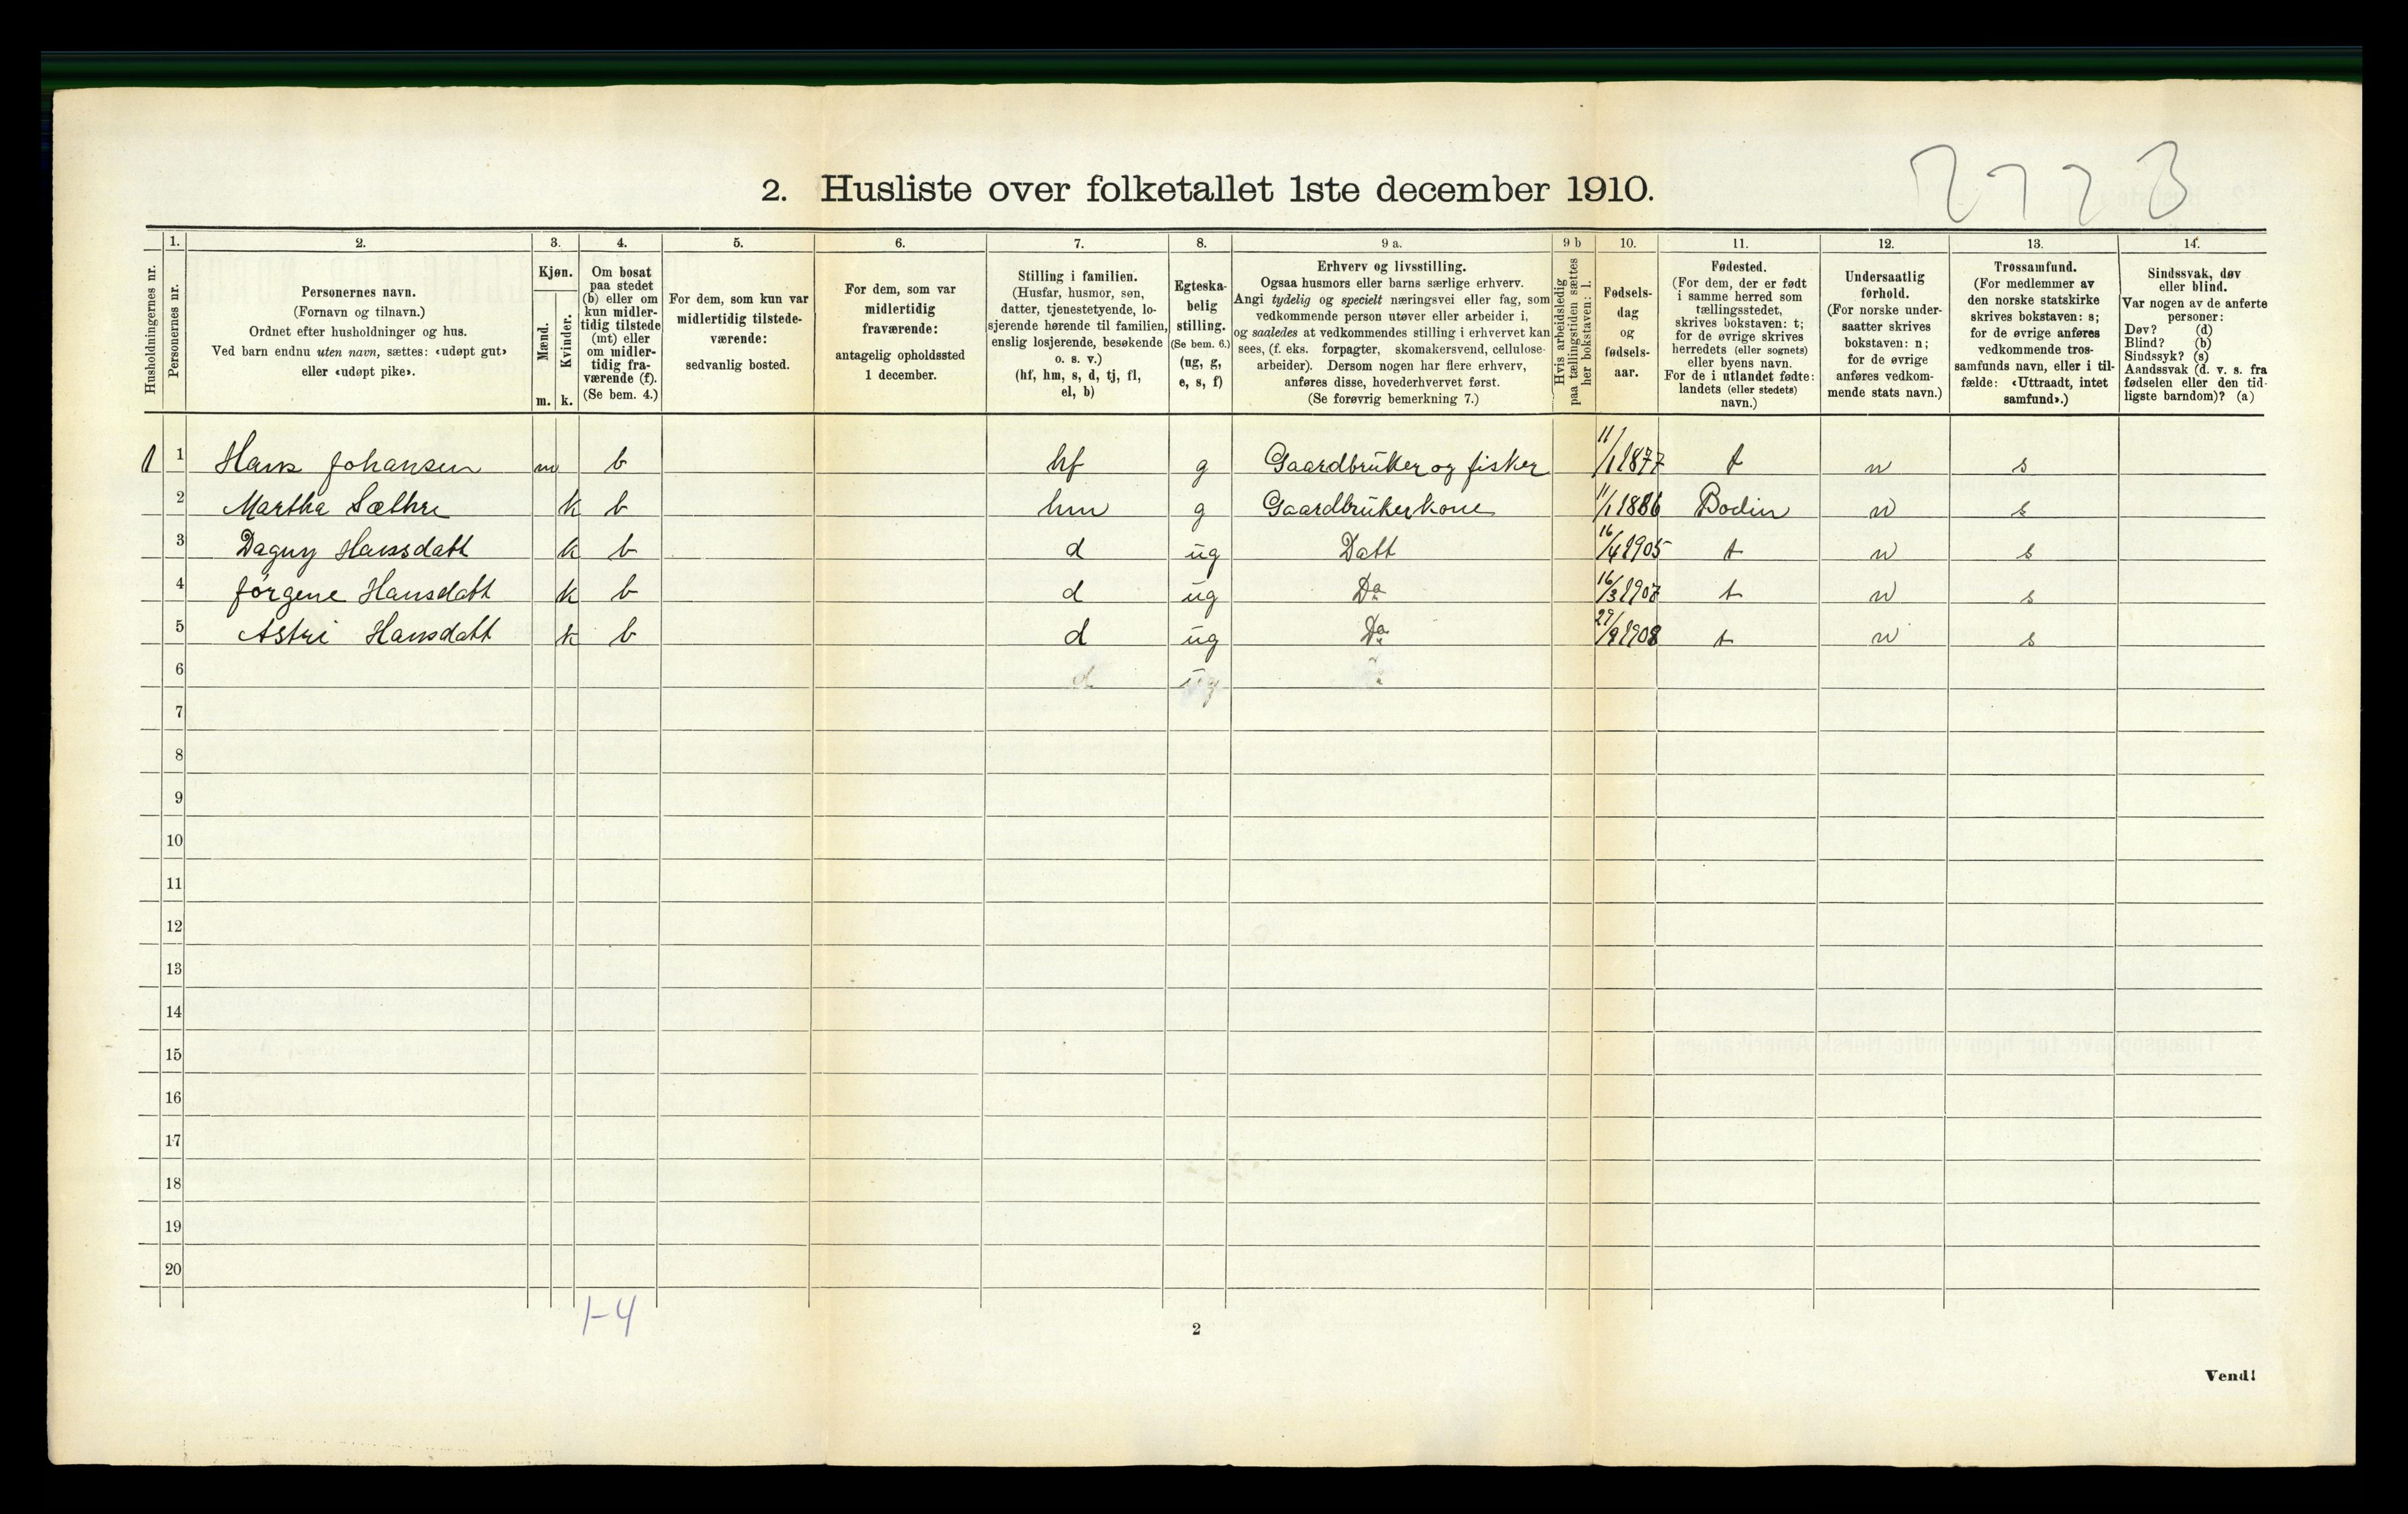 2773
2. Husliste over folketallet 1ste december 1910.
Husholdningernes nr.
1. Personernes nr.
2. Personernes navn. (Fornavn og tilnavn.) Ordnet efter husholdninger og hus. Ved barn endnu uten navn, sættes: «udøpt gut» eller «udøpt pike».
3. Kjøn. Mænd. m. Kvinder. k.
4. Om bosat paa stedet (b) eller om kun midler-tidig tilstede (mt) eller om midler-tidig fra-værende (f). (Se bem. 4.)
5. For dem, som kun var midlertidig tilstede-værende: sedvanlig bosted.
6. For dem, som var midlertidig fraværende: antagelig opholdssted 1 december.
7. Stilling i familien. (Husfar, husmor, søn, datter, tjenestetyende, lo-sjerende hørende til familien, enslig losjerende, besøkende o. s. v.) (hf, hm, s, d, tj, fl, el, b)
8. Egteska-belig stilling. (Se bem. 6.) (ug, g, e, s, f)
9 a. Erhverv og livsstilling. Ogsaa husmors eller barns særlige erhverv. Angi tydelig og specielt næringsvei eller fag, som vedkommende person utøver eller arbeider i, og saaledes at vedkommendes stilling i erhvervet kan sees, (f. eks. forpagter, skomakersvend, cellulose-arbeider). Dersom nogen har flere erhverv, anføres disse, hovederhvervet først. (Se forøvrig bemerkning 7.)
9 b Hvis arbeidsledig paa tællingstiden sættes her bokstaven: l.
10. Fødsels-dag og fødsels-aar.
11. Fødested. (For dem, der er født i samme herred som tællingsstedet, skrives bokstaven: t; for de øvrige skrives herredets (eller sognets) eller byens navn. For de i utlandet fødte: landets (eller stedets) navn.)
12. Undersaatlig forhold. (For norske under-saatter skrives bokstaven: n; for de øvrige anføres vedkom-mende stats navn.)
13. Trossamfund. (For medlemmer av den norske statskirke skrives bokstaven: s; for de øvrige anføres vedkommende tros-samfunds navn, eller i til-fælde: «Uttraadt, intet samfund».)
14. Sindssvak, døv eller blind. Var nogen av de anførte personer: Døv? (d) Blind? (b) Sindssyk? (s) Aandssvak (d. v. s. fra fødselen eller den tid-ligste barndom)? (a)
1 1 Hans Johansen m b hf g Gaardbrüker og fisker 11/1 1877 t n s
2 Martha Sæthre k b hm g Gaardbrükerkone 11/1 1886 Bodin n s
3 Dagny Hansdatt k b d ug Datt 16/4 1905 t n s
4 Jørgene Hansdatt k b d ug Do 16/3 1907 t n s
5 Astri Hansdatt k b d ug Do 29/9 1908 t n s
6 d ug
7
8
9
10
11
12
13
14
15
16
17
18
19
20
1-4
2
Vend!